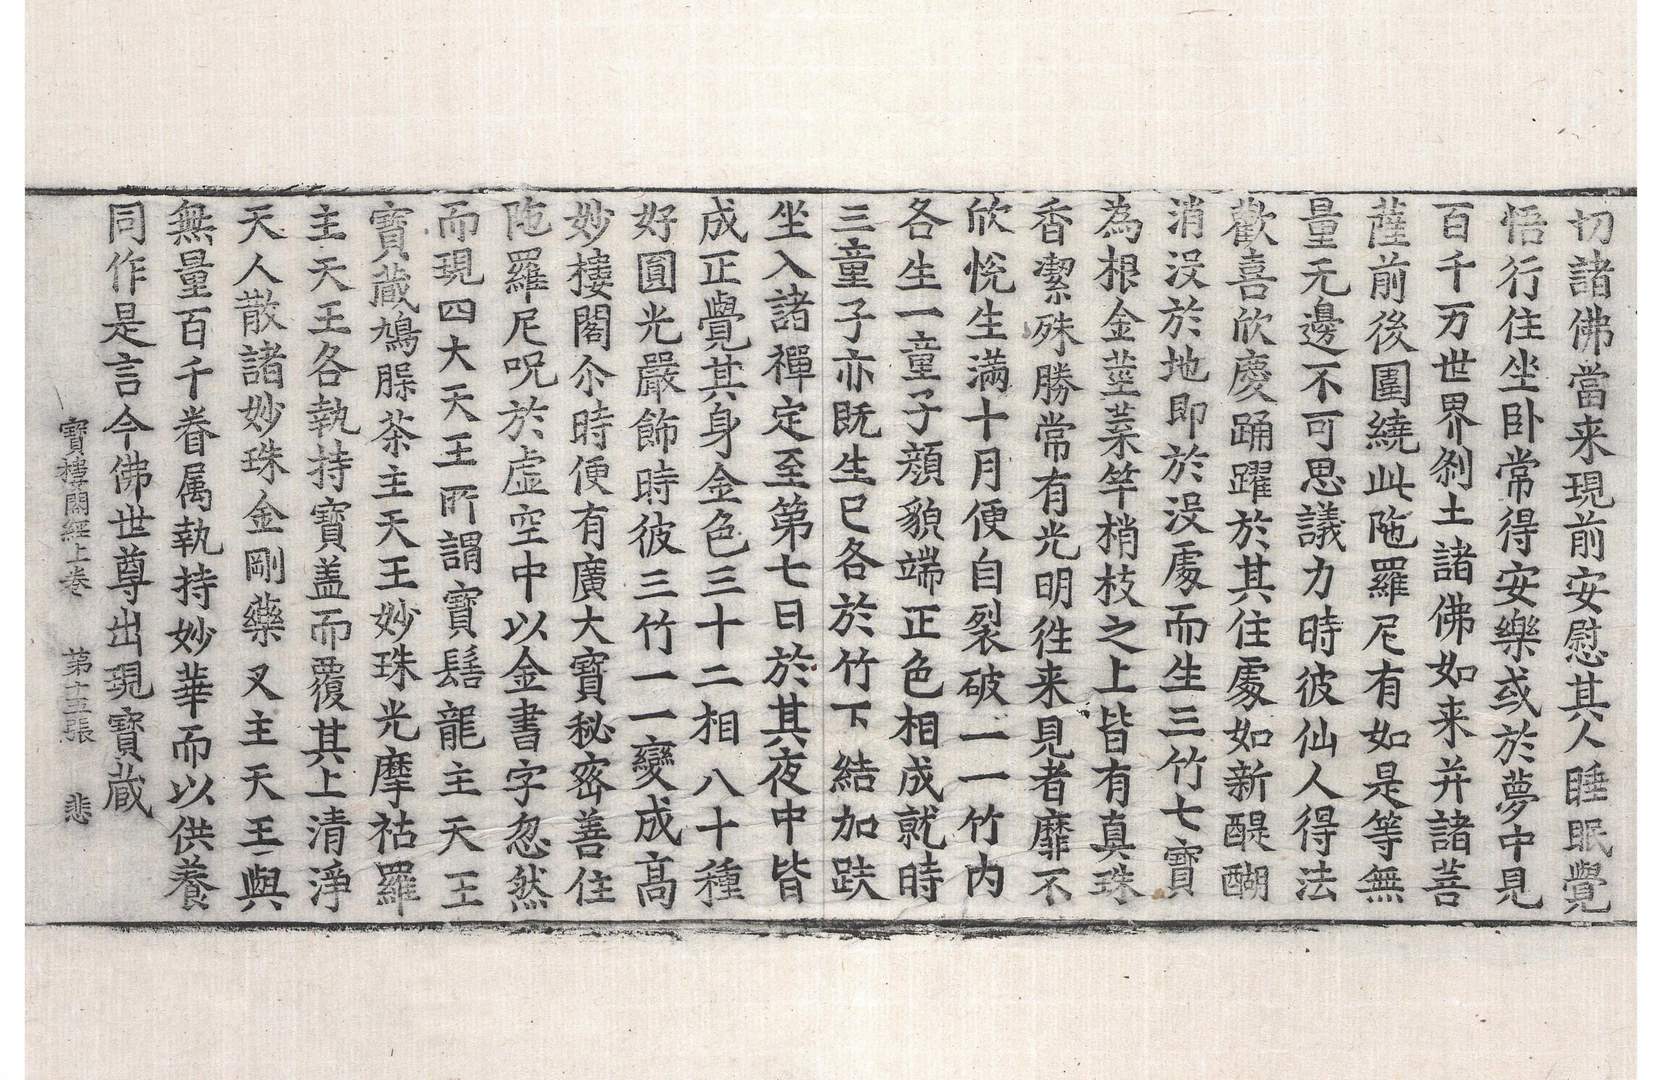 切諸佛當来現前安慰其人睡眠覺
悟行住坐卧常得安樂或於夢中見
百千万世界刹土諸佛如来并諸菩
薩前後圍繞此陁羅尼有如是等無
量无邊不可思議力時彼仙人得法
歡喜欣慶踊躍於其住處如新醍醐
消没於地即於没處而生三竹七寶
為根金莖葉竿梢枝之上皆有真珠
香潔殊勝常有光明徃来見者靡不
欣恱生滿十月便自裂破一一竹内
各生一童子顔貌端正色相成就時
三童子亦既生已各於竹下結加趺
坐入諸禪定至第七日於其夜中皆
成正覺其身金色三十二相八十種
好圓光嚴飾時彼三竹一一變成高
妙樓閣尒時便有廣大寶秘密善住
陁羅尼呪於虚空中以金書字忽然
而現四大天王所謂寶髻龍主天王
寶蔵鳩䏢茶主天王妙珠光摩祜羅
主天王各執持寶盖而覆其上清淨
天人散諸妙珠金剛藥叉主天王與
無量百千眷属執持妙華而以供養
同作是言今佛世尊出現寶蔵
寶樓閣經上卷　第十五張　悲